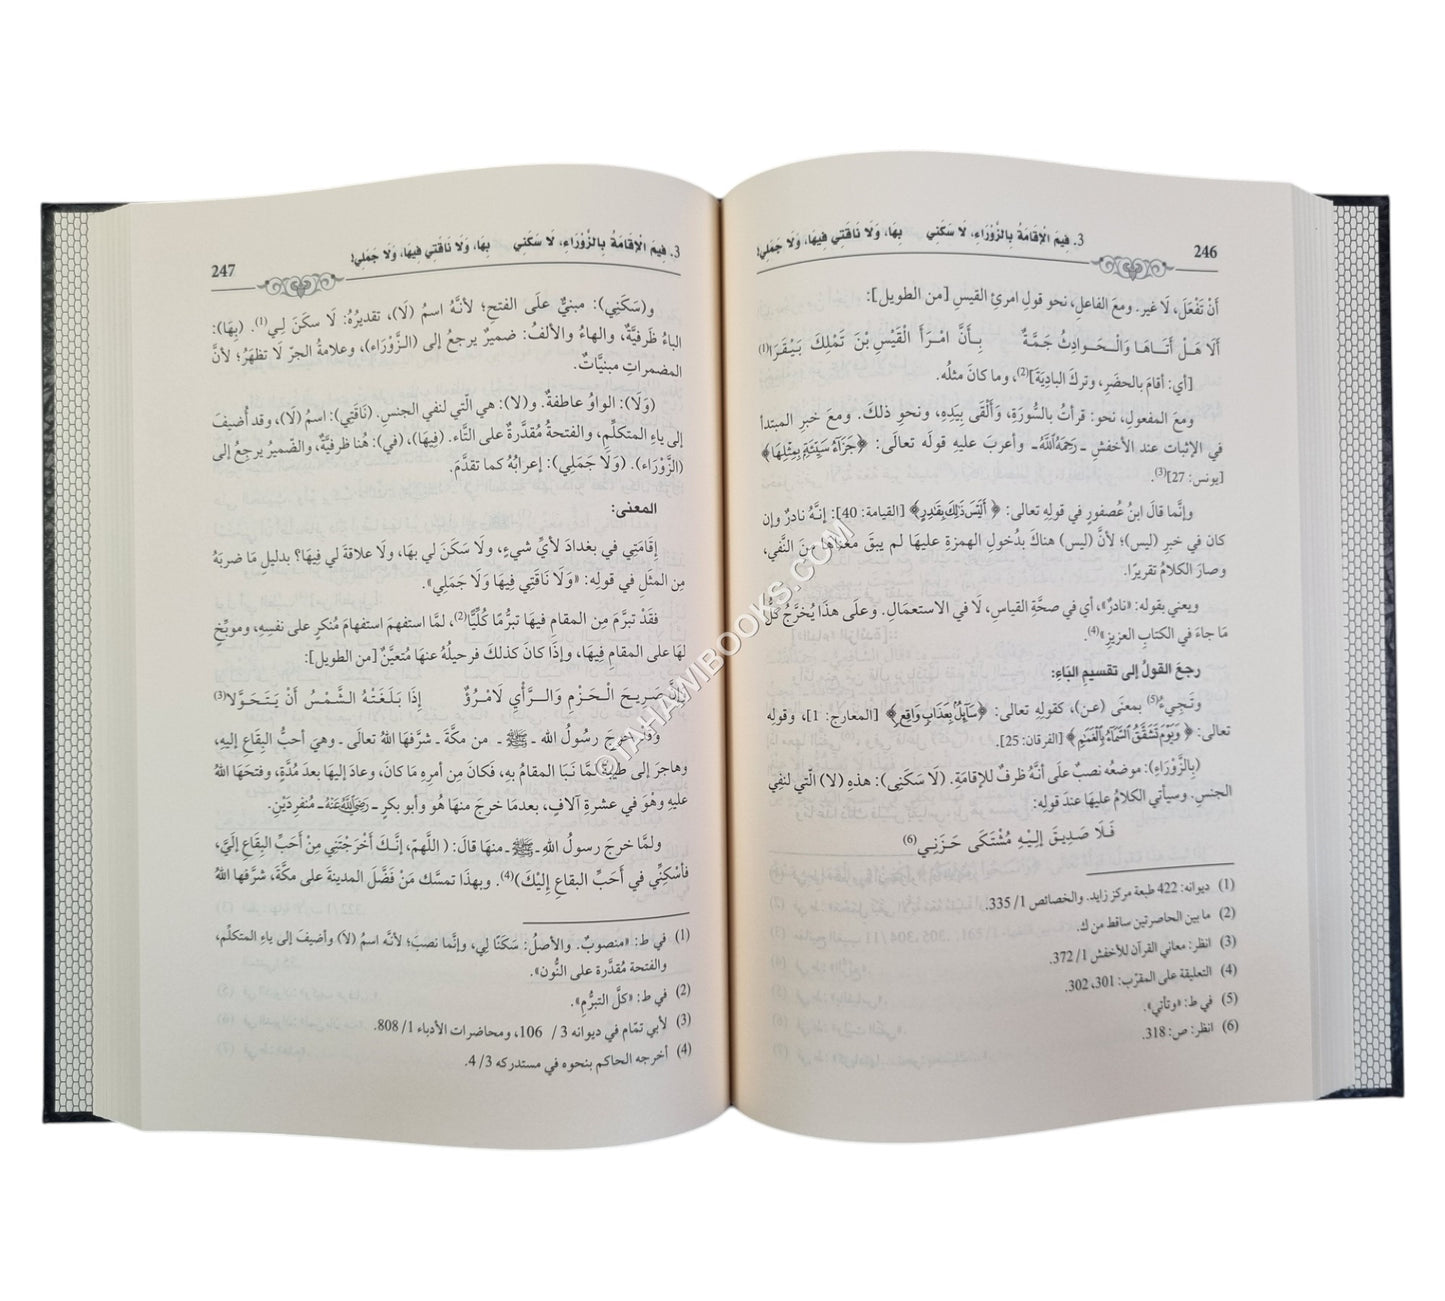 246
3. فِيمَ الْإقَامَةُ بِالزَّوْرَاءِ، لَا سَكَنِي بِهَا، وَلَا نَاقَتِي فِيهَا، وَلَا جَمَلِي!
أَنْ تَفْعَلَ، لَا غير. ومعَ الفاعلِ، نحو قولِ امرئِ القيسِ [من الطويل]:
أَلَا هَلْ أَتَاهَا وَالْحَوَادِثُ جَمَّةٌ بِأَنَّ امْرَأَ الْقَيْسِ بْنَ تَمْلِكَ بَيْقَرَا(1)
[أي: أقامَ بالحضَرِ، وتركَ البادِيَةَ](2)، وما كانَ مثلُه.
ومعَ المفعولِ، نحو: قرأتُ بالسُّورَةِ، وَأَلْقَى بِيَدِهِ، ونحوِ ذلكَ. ومعَ خبرِ المبتدأ
في الإثبات عند الأخفش ـ رَحِمَهُ اللَّهُ ـ وأعربَ عليهِ قولَه تعالَى: ﴿جَزَاءُ سَيِّئَةٍ بِمِثْلِهَا﴾
[يونس: 27](3).
وإنَّما قالَ ابنُ عُصفورٍ في قولِهِ تعالى: ﴿أَلَيْسَ ذَلِكَ بِقَادِرٍ﴾ [القيامة: 40]: إنَّهُ نادرٌ وإن
كان في خبرِ (ليس)؛ لأنَّ (ليس) هناكَ بدُخولِ الهمزةِ عليهَا لم يبقَ معْناهَا مِنَ النَّفيِ،
وصارَ الكلامُ تقريرًا.
ويعني بقوله: «نادرٌ»، أي في صحَّةِ القياسِ، لَا في الاستعمَالِ. وعلَى هذَا يُخرَّجُ كُلُّ
مَا جاءَ في الكتابِ العزيزِ»(4).
رجعَ القولُ إلى تقسيمِ البَاءِ:
وتَجيءُ(5) بمعنَى (عن)، كقولِهِ تعالى: ﴿سَأَلَ سَائِلٌ بِعَذَابٍ وَاقِعٍ﴾ [المعارج: 1]، وقولِه
تعالى: ﴿وَيَوْمَ تَشَقَّقُ السَّمَاءُ بِالْغَمَامِ﴾ [الفرقان: 25].
(بِالزَّوْرَاءِ): موضعُه نصبٌ علَى أنَّهُ ظرفٌ للإقامَةِ. (لَا سَكَنِى): هذهِ (لا) الَّتي لنفيِ
الجنسِ. وسيأتي الكلامُ عليهَا عندَ قولِهِ:
فَلَا صَدِيقَ إِلَيْهِ مُشْتَكَى حَزَنِي(6)
(1) ديوانه: 422 طبعة مركز زايد. والخصائص 1/ 335.
(2) ما بين الحاصرتين ساقط من ك.
(3) انظر: معاني القرآن للأخفش 1/ 372.
(4) التعليقة على المقرّب: 301، 302.
(5) في ط: «وتأتي».
(6) انظر: ص: 318.
247
3. فِيمَ الْإقَامَةُ بِالزَّوْرَاءِ، لَا سَكَنِي بِهَا، وَلَا نَاقَتِي فِيهَا، وَلَا جَمَلِي!
و(سَكَنِي): مبنيٌّ علَى الفتحِ؛ لأنَّهُ اسمُ (لَا)، تقديرُهُ: لَا سكنَ لِي(1). (بِهَا):
الباءُ ظَرفيَّةٌ، والهاءُ والألفُ: ضميرٌ يرجعُ إلى (الزَّوْرَاء)، وعلامةُ الجرِّ لَا تظهَرُ؛ لأنَّ
المضمراتِ مبنيَّاتٌ.
(وَلَا): الواوُ عاطفةٌ. و(لا): هي الَّتي لنفي الجنسِ. (نَاقَتِي): اسمُ (لَا)، وقد أُضيفَ
إلى ياءِ المتكلِّمِ، والفتحةُ مُقدَّرةٌ على التَّاء. (فِيهَا)، (في): هُنا ظرفيَّةٌ، والضّميرُ يرجِعُ إلى
(الزَّوْرَاء). (وَلَا جَمَلِي): إعرابُهُ كما تقدَّمَ.
المعنى:
إقَامَتِي في بغدادَ لأيِّ شيءٍ، ولَا سَكَنَ لي بهَا، ولَا علاقةَ لي فِيهَا؟ بدليلِ مَا ضربَهُ
مِن المثَلِ في قولِه: «وَلَا نَاقَتِي فِيهَا وَلَا جَمَلِي».
فقَدْ تبرَّمَ مِن المقامِ فيهَا تبرُّمًا كُلِّيًّا(2)، لمَّا استفهمَ استفهامَ مُنكرٍ على نفسِهِ، وموبِّخٍ
لهَا على المقامِ فِيهَا، وإذَا كانَ كذلكَ فرحيلُهُ عنهَا مُتعيَّنٌ [من الطويل]:
إِنَّ صَرِيحَ الْحَزْمِ وَالرَّأْيِ لَامْرُؤٌ إِذَا بَلَغَتْهُ الشَّمْسُ أَنْ يَتَحَوَّلَا(3)
وقد أُخرجَ رسُولُ الله ـ ﷺ ـ من مكَّةَ ـ شرَّفهَا اللهُ تعالَى ـ وهيَ أحبُّ البِقَاعِ إليهِ،
وهاجرَ إلى طيبةَ لمَّا نَبَا المقامُ بهِ، فكَانَ مِن أمرِهِ مَا كانَ، وعادَ إليهَا بعدَ مُدَّةٍ، وفتحَهَا اللهُ
عليهِ وهْوَ في عشرةِ آلافٍ، بعدمَا خرجَ منهَا هُو وأبو بكرٍ ـ رَضِيَ اللَّهُ عَنْهُ ـ مُنفرِدَيْنِ.
ولمَّا خرجَ رسولُ اللهِ ـ ﷺ ـ منهَا قالَ: (اللَّهمّ، إنَّكَ أَخْرَجْتَنِي مِنْ أَحَبِّ البِقَاعِ إلَيَّ،
فَأَسْكِنِّي في أَحَبِّ البقاعِ إِلَيْكَ)(4). وبهذَا تمسَّك مَنْ فَضَّلَ المدينةَ على مكَّةَ، شرَّفهَا اللهُ
(1) في ط: «منصوبٌ. والأصلُ: سَكَنًا لِي، وإنَّما نصبَ؛ لأنَّه اسمُ (لَا) وأضيفَ إلى ياءِ المتكلِّم،
والفتحة مُقدَّرة على النُّون».
(2) في ط: «كلَّ التبرُّم».
(3) لأبي تمّام في ديوانه 3 / 106، ومحاضرات الأدباء 1/ 808.
(4) أخرجه الحاكم بنحوه في مستدركه 3/ 4.
©TAHAWIBOOKS.COM